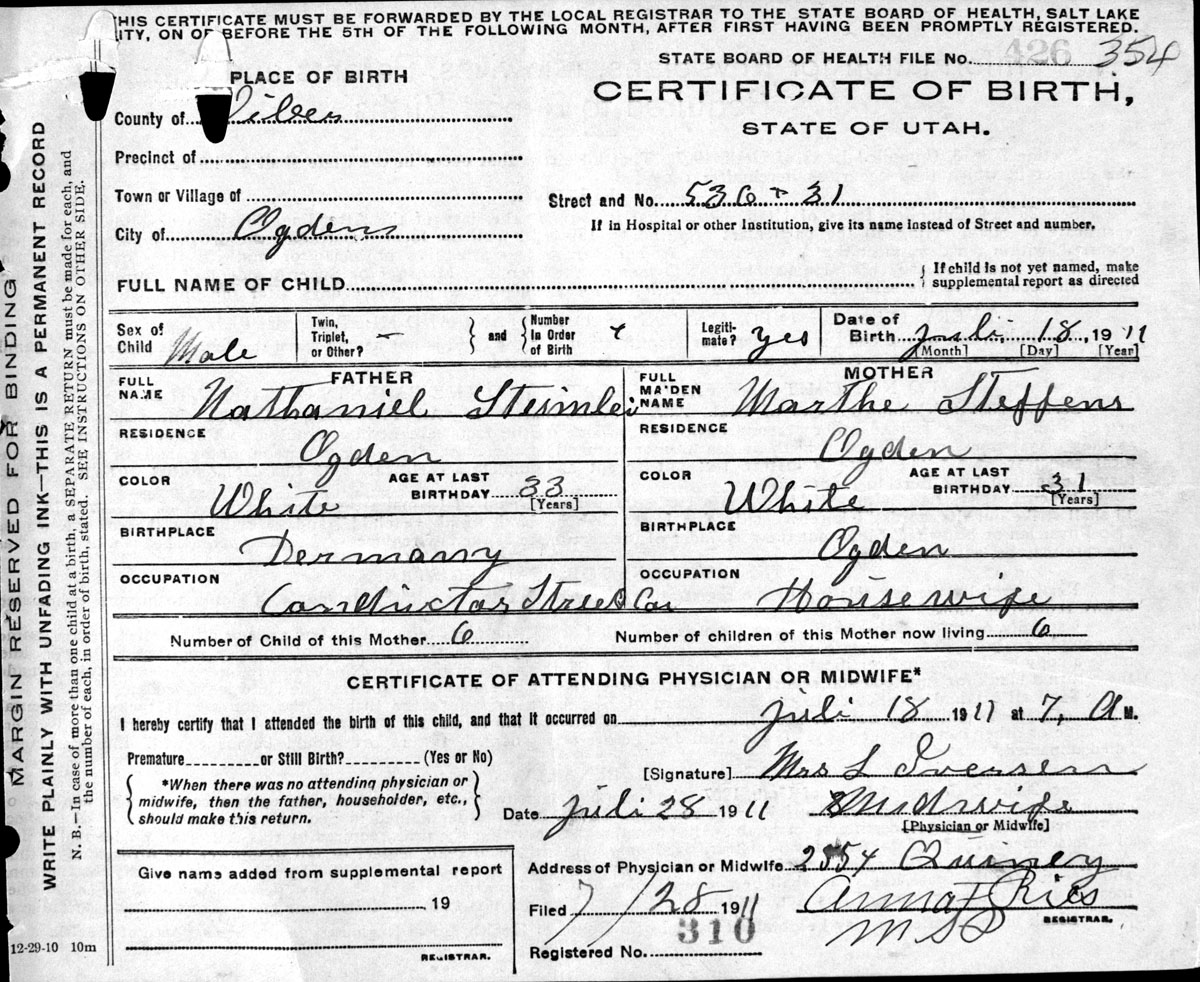 THIS CERTIFICATE MUST BE FORWARDED BY THE LOCAL REGISTRAR TO THE STATE BOARD OF HEALTH, SALT LAKE
CITY, ON OR BEFORE THE 5TH OF THE FOLLOWING MONTH, AFTER FIRST HAVING BEEN PROMPTLY REGISTERED.
STATE BOARD OF HEALTH FILE No. 426 354
PLACE OF BIRTH
CERTIFICATE OF BIRTH,
County of
STATE OF UTAH.
Precinct of
Town or Village of
Street and No. 536 - 31
City of Ogden
If in Hospital or other Institution, give its name instead of Street and number.
FULL NAME OF CHILD
If child is not yet named, make
supplemental report as directed
Sex of Child Male
Twin, Triplet, or Other? -
and
Number In Order of Birth
Legitimate? Yes
Date of Birth juli 18, 1911
[Month] [Day] [Year]
FATHER
FULL NAME Nathaniel
RESIDENCE
Ogden
COLOR White
AGE AT LAST BIRTHDAY 33
[Years]
BIRTHPLACE
Dermany
OCCUPATION
Conductor Street Car
MOTHER
FULL MAIDEN NAME Marthe Steffens
RESIDENCE
Ogden
COLOR White
AGE AT LAST BIRTHDAY 31
[Years]
BIRTHPLACE
Ogden
OCCUPATION
Housewife
Number of Child of this Mother 6
Number of children of this Mother now living 6
CERTIFICATE OF ATTENDING PHYSICIAN OR MIDWIFE*
I hereby certify that I attended the birth of this child, and that it occurred on juli 18 1911 at 7, A M.
Premature or Still Birth? (Yes or No)
[Signature] Mrs L Iversen
*When there was no attending physician or
midwife, then the father, householder, etc.,
should make this return.
Date juli 28 1911
Midwife
[Physician or Midwife]
Give name added from supplemental report
19
REGISTRAR.
Address of Physician or Midwife 2554 Quincy
Filed 7/28 1911
Anna F Ries
REGISTRAR.
Registered No. 310
12-29-10 10m
MARGIN RESERVED FOR BINDING
WRITE PLAINLY WITH UNFADING INK—THIS IS A PERMANENT RECORD
N. B.—In case of more than one child at a birth, a SEPARATE RETURN must be made for each, and
the number of each, in order of birth, stated. SEE INSTRUCTIONS ON OTHER SIDE.